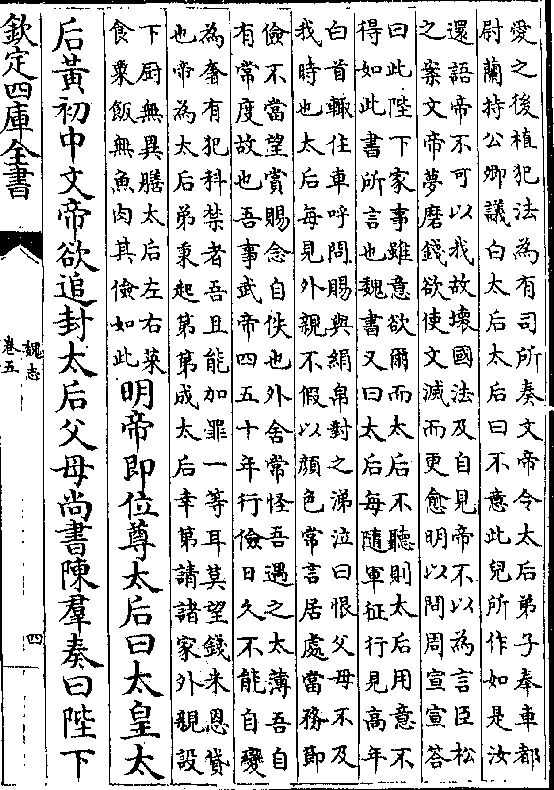 愛之後植犯法為有司所奏文帝令太后弟子奉車都
尉蘭持公卿議白太后太后曰不意此兒所作如是汝
還語帝不可以我故壞國法及自見帝不以為言臣松
之案文帝夢磨錢欲使文滅而更愈明以問周宣宣答
曰此陛下家事雖意欲爾而太后不聽則太后用意不
得如此書所言也魏書又曰太后每隨軍征行見高年
白首輒住車呼問賜與絹帛對之涕泣曰恨父母不及
我時也太后每見外親不假以顏色常言居處當務節
儉不當望賞賜念自佚也外舍常怪吾遇之太薄吾自
有常度故也吾事武帝四五十年行儉日久不能自變
為奢有犯科禁者吾且能加罪一等耳莫望錢米恩貸
也帝為太后弟秉起第第成太后幸第請諸家外親設
下厨無異膳太后左右菜
食粟飯無魚肉其儉如此
明帝即位尊太后曰太皇太
后黃初中文帝欲追封太后父母尚書陳羣奏曰陛下
欽定四庫全書
魏志
卷五
四